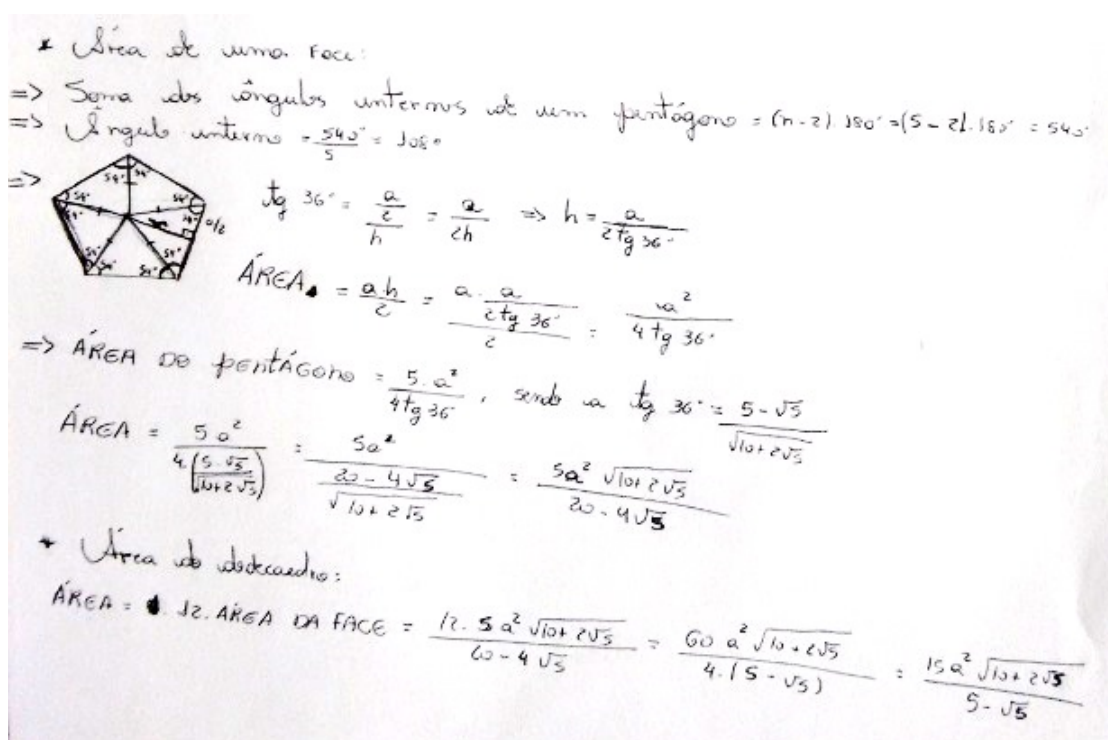 * Área de uma face:
=> Soma dos ângulos internos de um pentágono = (n-2).180° = (5-2).180° = 540°
=> Ângulo interno = 540°/5 = 108°
=>
54° 54° 54° 54° 54° 54° 54° 54° a/2
tg 36° = (a/2)/h = a/2h => h = a/(2 tg 36°)
ÁREA = ah/2 = (a . a/(2 tg 36°))/2 = a²/(4 tg 36°)
=> ÁREA DO pentÁGono = 5.a²/(4 tg 36°), sendo a tg 36° = (5-√5)/√(10+2√5)
ÁREA = 5a²/(4.((5-√5)/√(10+2√5))) = 5a²/((20-4√5)/√(10+2√5)) = 5a²√(10+2√5)/(20-4√5)
* Área do dodecaedro:
ÁREA = 12. ÁREA DA FACE = 12.5a²√(10+2√5)/(20-4√5) = 60a²√(10+2√5)/(4.(5-√5)) = 15a²√(10+2√5)/(5-√5)